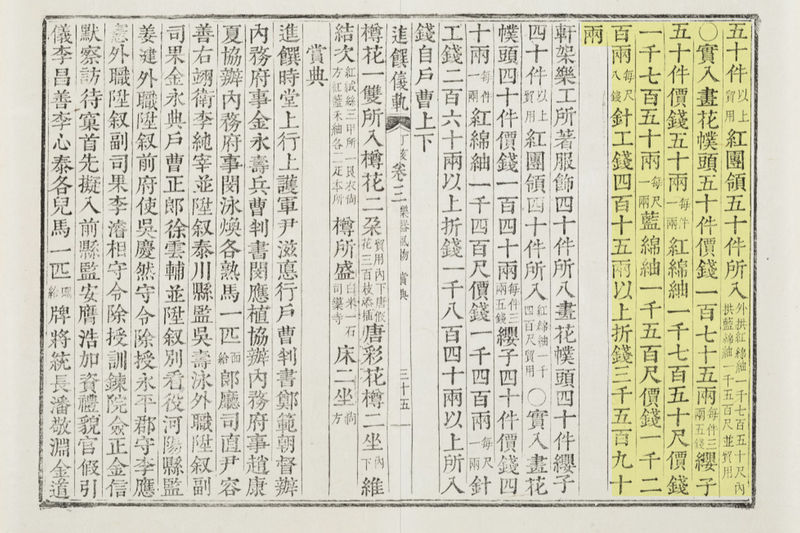 五十件以上貿用紅團領五十件所入外拱紅綿紬一千七百五十尺內拱藍綿紬一千五百尺並貿用
○實入畫花幞頭五十件價錢一百七十五兩每件三兩五錢纓子
五十件價錢五十兩每件一兩紅綿紬一千七百五十尺價錢
一千七百五十兩每尺一兩藍綿紬一千五百尺價錢一千二
百兩每尺八錢針工錢四百十五兩以上折錢三千五百九十
兩
軒架樂工所著服飾四十件所入畫花幞頭四十件纓子
四十件以上貿用紅團領四十件所入紅綿紬一千四百尺貿用○實入畫花
幞頭四十件價錢一百四十兩每件三兩五錢纓子四十件價錢四
十兩每件一兩紅綿紬一千四百尺價錢一千四百兩每尺一兩針
工錢二百六十兩以上折錢一千八百四十兩以上所入
錢自戶曹上下
進饌儀軌 丁亥 卷三 樂器風物 賞典 三十五
樽花一雙所入樽花二朶貿用內下唐假花三百枝添插唐彩花樽二坐內下維
結次紅絨絲三甲所一艮衣尙方紅藍禾紬各一疋本所樽所盛白米一石司䆃寺床二坐尙方
賞典
進饌時堂上行上護軍尹滋悳行戶曹判書鄭範朝督辦
內務府事金永壽兵曹判書閔應植協辦內務府事趙康
夏協辦內務府事閔泳煥各熟馬一匹面給郞廳司直尹容
善右翊衛李純宰並陞叙泰川縣監吳壽泳外職陞叙副
司果金永典戶曹正郞徐雲輔並陞叙別看役河陽縣監
姜湕外職陞叙前府使吳慶然守令除授永平郡守李應
憲外職陞叙副司果李濬相守令除授訓鍊院僉正金信
默察訪待窠首先擬入前縣監安膺浩加資禮貌官假引
儀李昌善李心泰各兒馬一匹賜給牌將統長潘敬淵金道